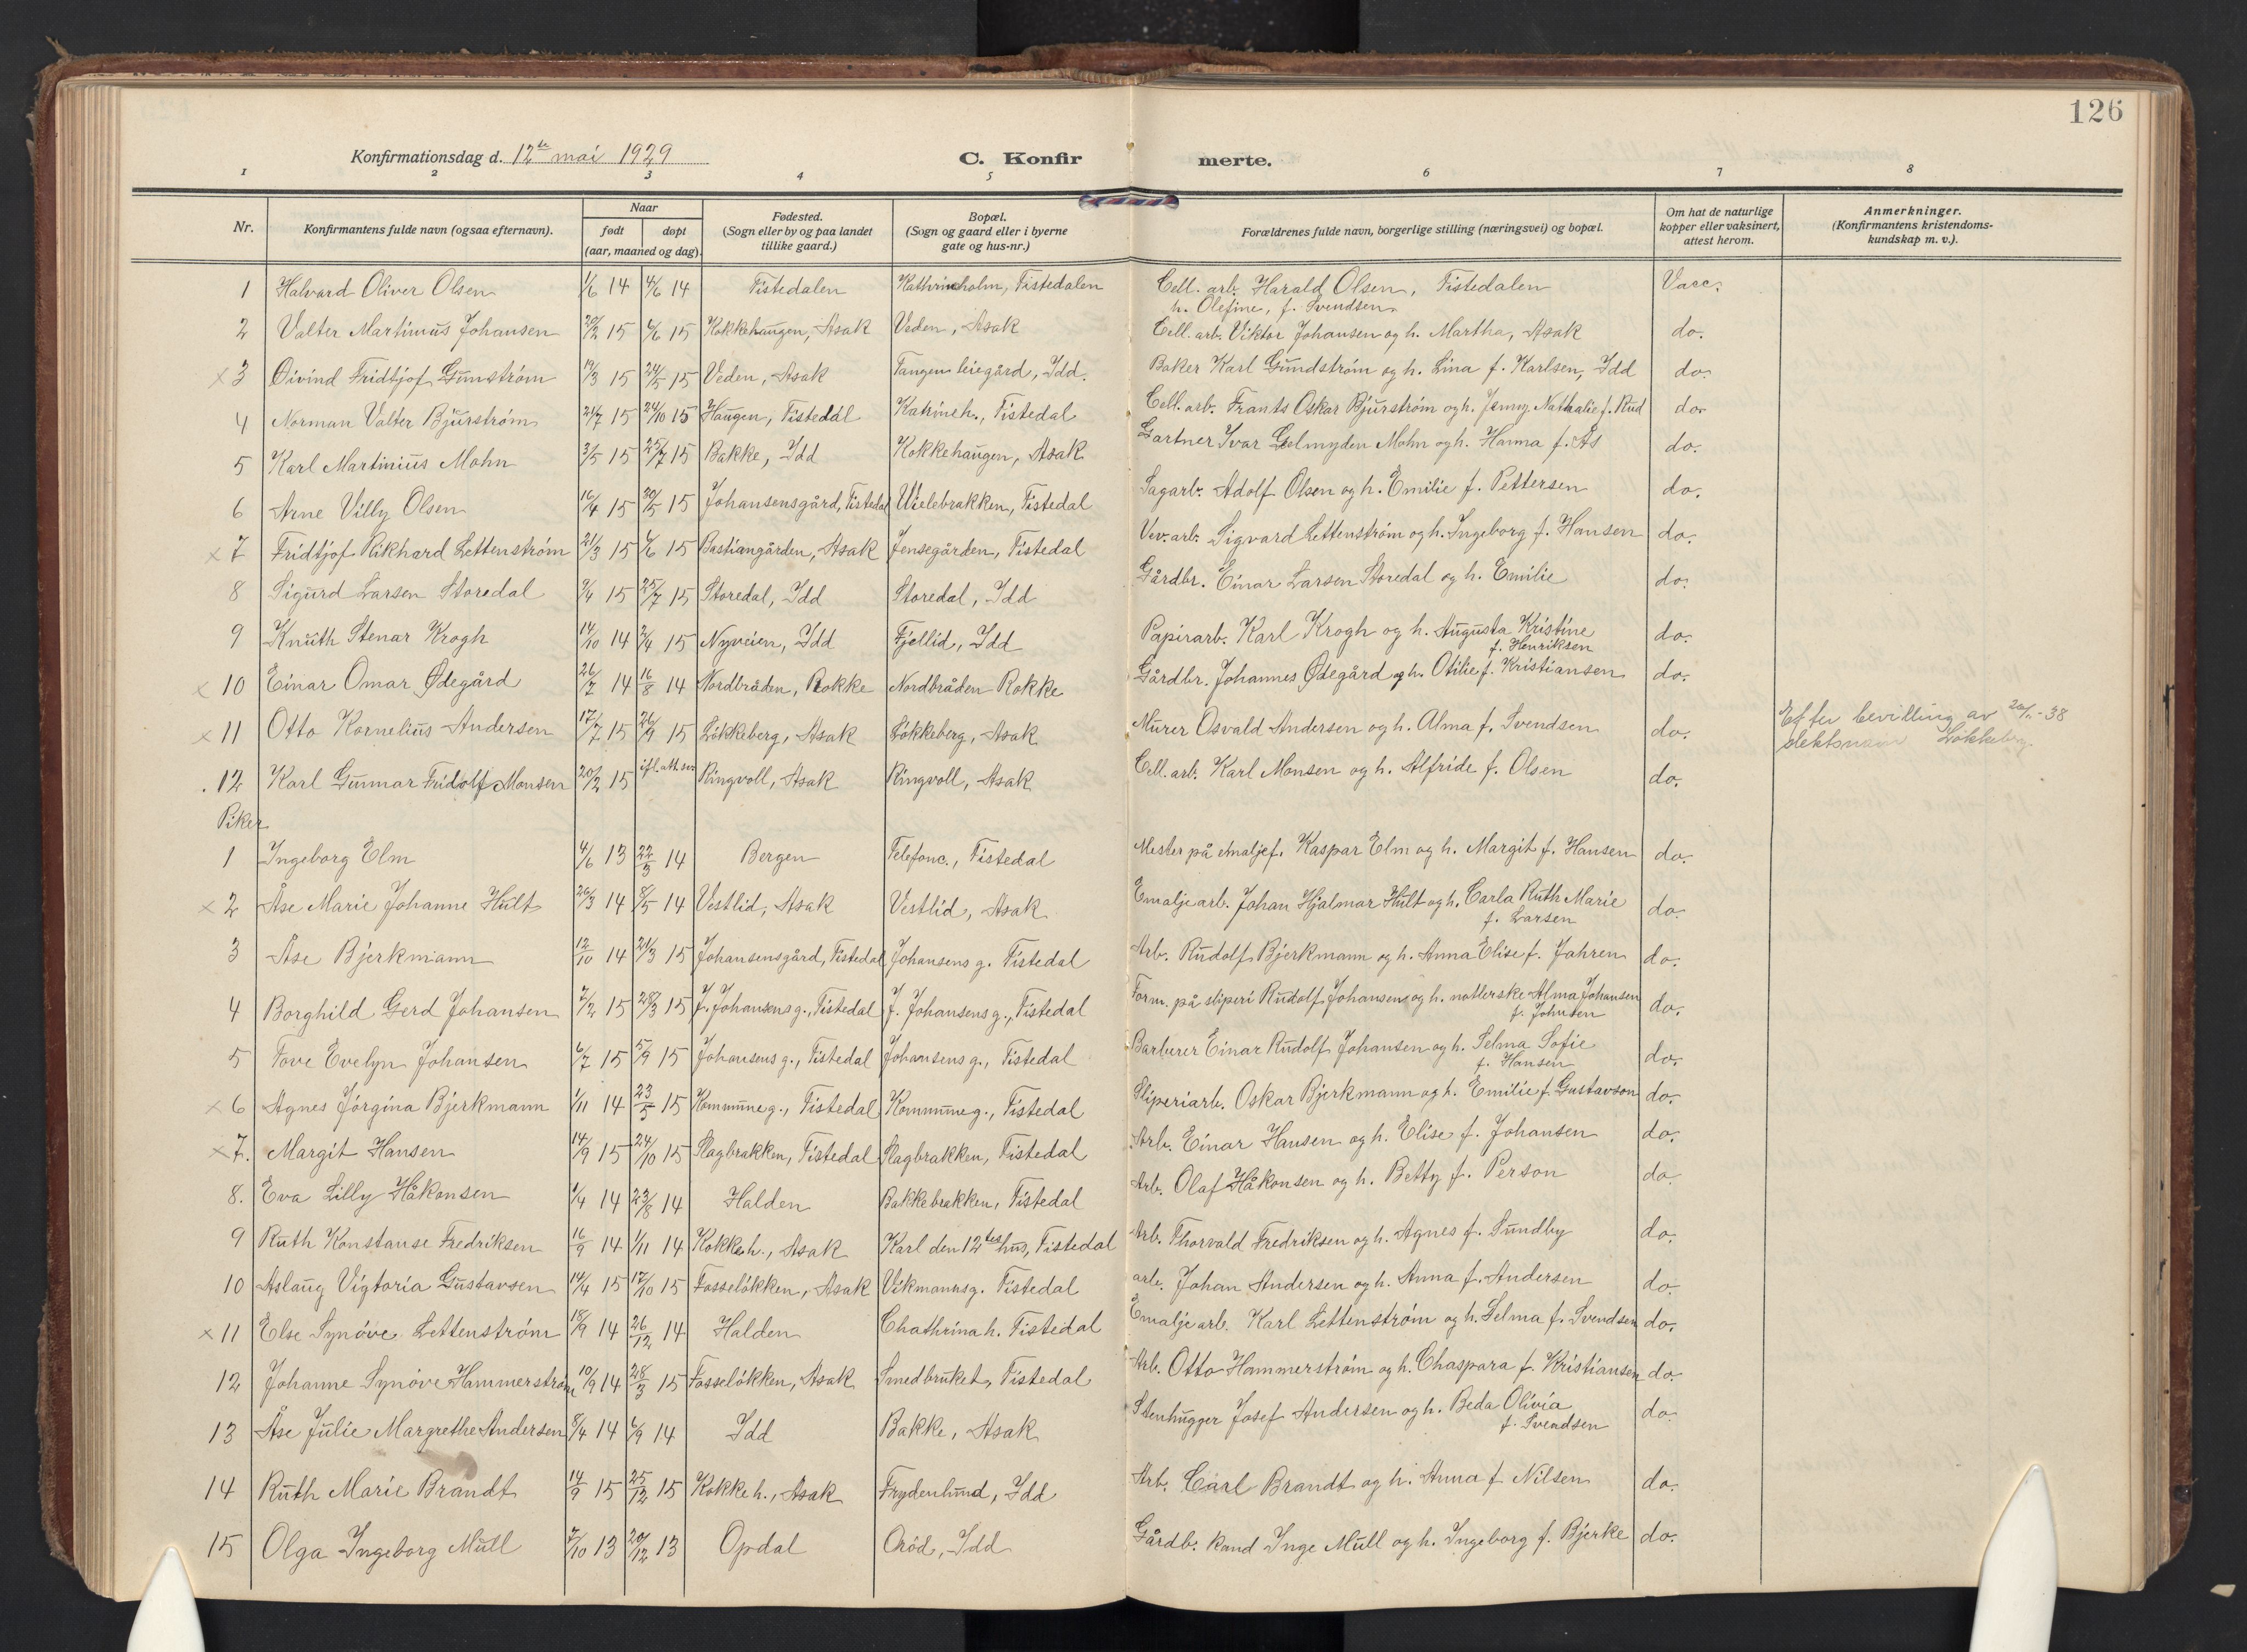 126
Konfirmationsdag d. 12te mai 1929 C. Konfirmerte.
1 2 3 4 5 6 7 8
Nr. Konfirmantens fulde navn (ogsaa efternavn). Naar født døpt (aar, maaned og dag). Fødested. (Sogn eller by og paa landet tillike gaard.) Bopæl. (Sogn og gaard eller i byerne gate og hus-nr.) Forældrenes fulde navn, borgerlige stilling (næringsvei) og bopæl. Om hat de naturlige kopper eller vaksinert, attest herom. Anmerkninger. (Konfirmantens kristendomskundskap m. v.).
1 Halvard Oliver Olsen 1/6 14 4/6 14 Tistedalen Kathrineholm, Tistedalen Cell. arb. Harald Olsen, Tistedalen h. Olefine, f. Svendsen Vacc.
2 Valter Martinus Johansen 20/2 15 6/6 15 Kokkehaugen, Asak Veden, Asak Cell. arb. Viktor Johansen og h. Martha, Asak do.
x 3 Öivind Fridtjof Gumström 19/3 15 24/5 15 Veden, Asak Tangen leiegård, Idd. Baker Karl Gundström og h. Lina f. Karlsen, Idd do.
4 Norman Valter Bjurström 21/7 15 24/10 15 Haugen, Tistedal Katrineh., Tistedal Cell. arb. Frants Oskar Bjurström og h. Jenny Nathalie f. Rud do.
5 Karl Martinius Mohn 3/5 15 25/7 15 Bakke, Idd Kokkehaugen, Asak Gartner Ivar Gelmyden Mohn og h. Hanna f. Ås do.
6 Arne Villy Olsen 16/4 15 30/5 15 Johansensgård, Tistedal Uielebrakken, Tistedal Sagarb. Adolf Olsen og h. Emilie f. Pettersen do.
x 7 Fridtjof Rikhard Lettenström 21/3 15 6/6 15 Bastiangården, Asak Jensegården, Tistedal Vev. arb. Sigvard Lettenström og h. Ingeborg f. Hansen do.
8 Sigurd Larsen Storedal 9/4 15 25/7 15 Storedal, Idd Storedal, Idd Gårdbr. Einar Larsen Storedal og h. Emilie do.
9 Knuth Stenar Krogh 14/10 14 2/4 15 Nyveien, Idd Fjellid, Idd Papirarb. Karl Krogh og h. Augusta Kristine f. Henriksen do.
x 10 Einar Omar Ødegård 26/7 14 16/8 14 Nordbråden, Rokke Nordbråden Rokke Gårdbr. Johannes Ødegård og h. Otilie f. Kristiansen do.
x 11 Otto Kornelius Andersen 17/7 15 26/9 15 Lökkeberg, Asak Lökkeberg, Asak Murer Osvald Andersen og h. Alma f. Svendsen do. Efter bevilling av 20/1-38 slektsnavn Lökkeberg.
12 Karl Gunnar Fridolf Monsen 20/2 15 ifl. attser Ringvoll, Asak Ringvoll, Asak Cell. arb. Karl Monsen og h. Alfride f. Olsen do.
Piker
1 Ingeborg Elm 4/6 13 22/3 14 Bergen Telefonc., Tistedal Mester på emaljef. Kaspar Elm og h. Margit f. Hansen do.
x 2 Åse Marie Johanne Hult 26/3 14 8/5 14 Vestlid, Asak Vestlid, Asak Emaljearb. Johan Hjalmar Hult og h. Carla Ruth Marie f. Larsen do.
3 Åse Bjerkmann 12/10 14 21/3 15 Johansensgård, Tistedal Johansens g. Tistedal Arb. Rudolf Bjerkmann og h. Anna Elise f. Jahren do.
4 Borghild Gerd Johansen 7/2 15 28/3 15 J. Johansens g., Tistedal J. Johansens g., Tistedal Form. på sliperi Rudolf Johansen og h. Alma Johansen f. Johnsen do.
5 Tove Evelyn Johansen 6/7 15 5/9 15 Johansens g., Tistedal Johansens g., Tistedal Barberer Einar Rudolf Johansen og h. Selma Sofie f. Hansen do.
x 6 Agnes Jörgina Bjerkmann 1/11 14 23/5 15 Kommuneg., Tistedal Kommuneg., Tistedal Sliperiarb. Oskar Bjerkmann og h. Emilie f. Gustavson do.
x 7. Margit Hansen 14/9 15 24/10 15 Slagbrakken, Tistedal Slagbrakken, Tistedal Arb. Einar Hansen og h. Elise f. Johansen do.
8. Eva Lilly Håkonsen 1/4 14 23/8 14 Halden Bakkebrakken, Tistedal Arb. Olaf Håkonsen og h. Betty f. Person do.
9 Ruth Konstanse Fredriksen 16/9 14 1/11 14 Kokkeh., Asak Karl den 12tes hus, Tistedal Arb. Thorvald Fredriksen og h. Agnes f. Sundby do.
10 Aslaug Vigtoria Gustavsen 14/4 15 17/10 15 Fosselökken, Asak Vikmannsg. Tistedal arb. Johan Andersen og h. Anna f. Andersen do.
x 11 Else Synöve Lettenström 18/9 14 26/12 14 Halden Chathrinah. Tistedal Emaljearb. Karl Lettenström og h. Selma f. Svendsen do.
12 Johanne Synöve Hammerström 10/9 14 28/3 15 Fosselökken, Asak Smedbruket, Tistedal Arb. Otto Hammerström og h. Chaspara f. Kristiansen do.
13 Åse Julie Margrethe Andersen 8/4 14 6/9 14 Idd Bakke, Asak Stenhugger Josef Andersen og h. Beda Olivia f. Svendsen do.
14 Ruth Marie Brandt 14/9 15 25/12 15 Kokke h., Asak Frydenlund, Idd Arb. Carl Brandt og h. Anna f. Nilsen do.
15 Olga Ingeborg Mull 7/10 13 20/12 13 Opdal Oröd, Idd Gårdb. kand Inge Mull og h. Ingeborg f. Bjerke do.